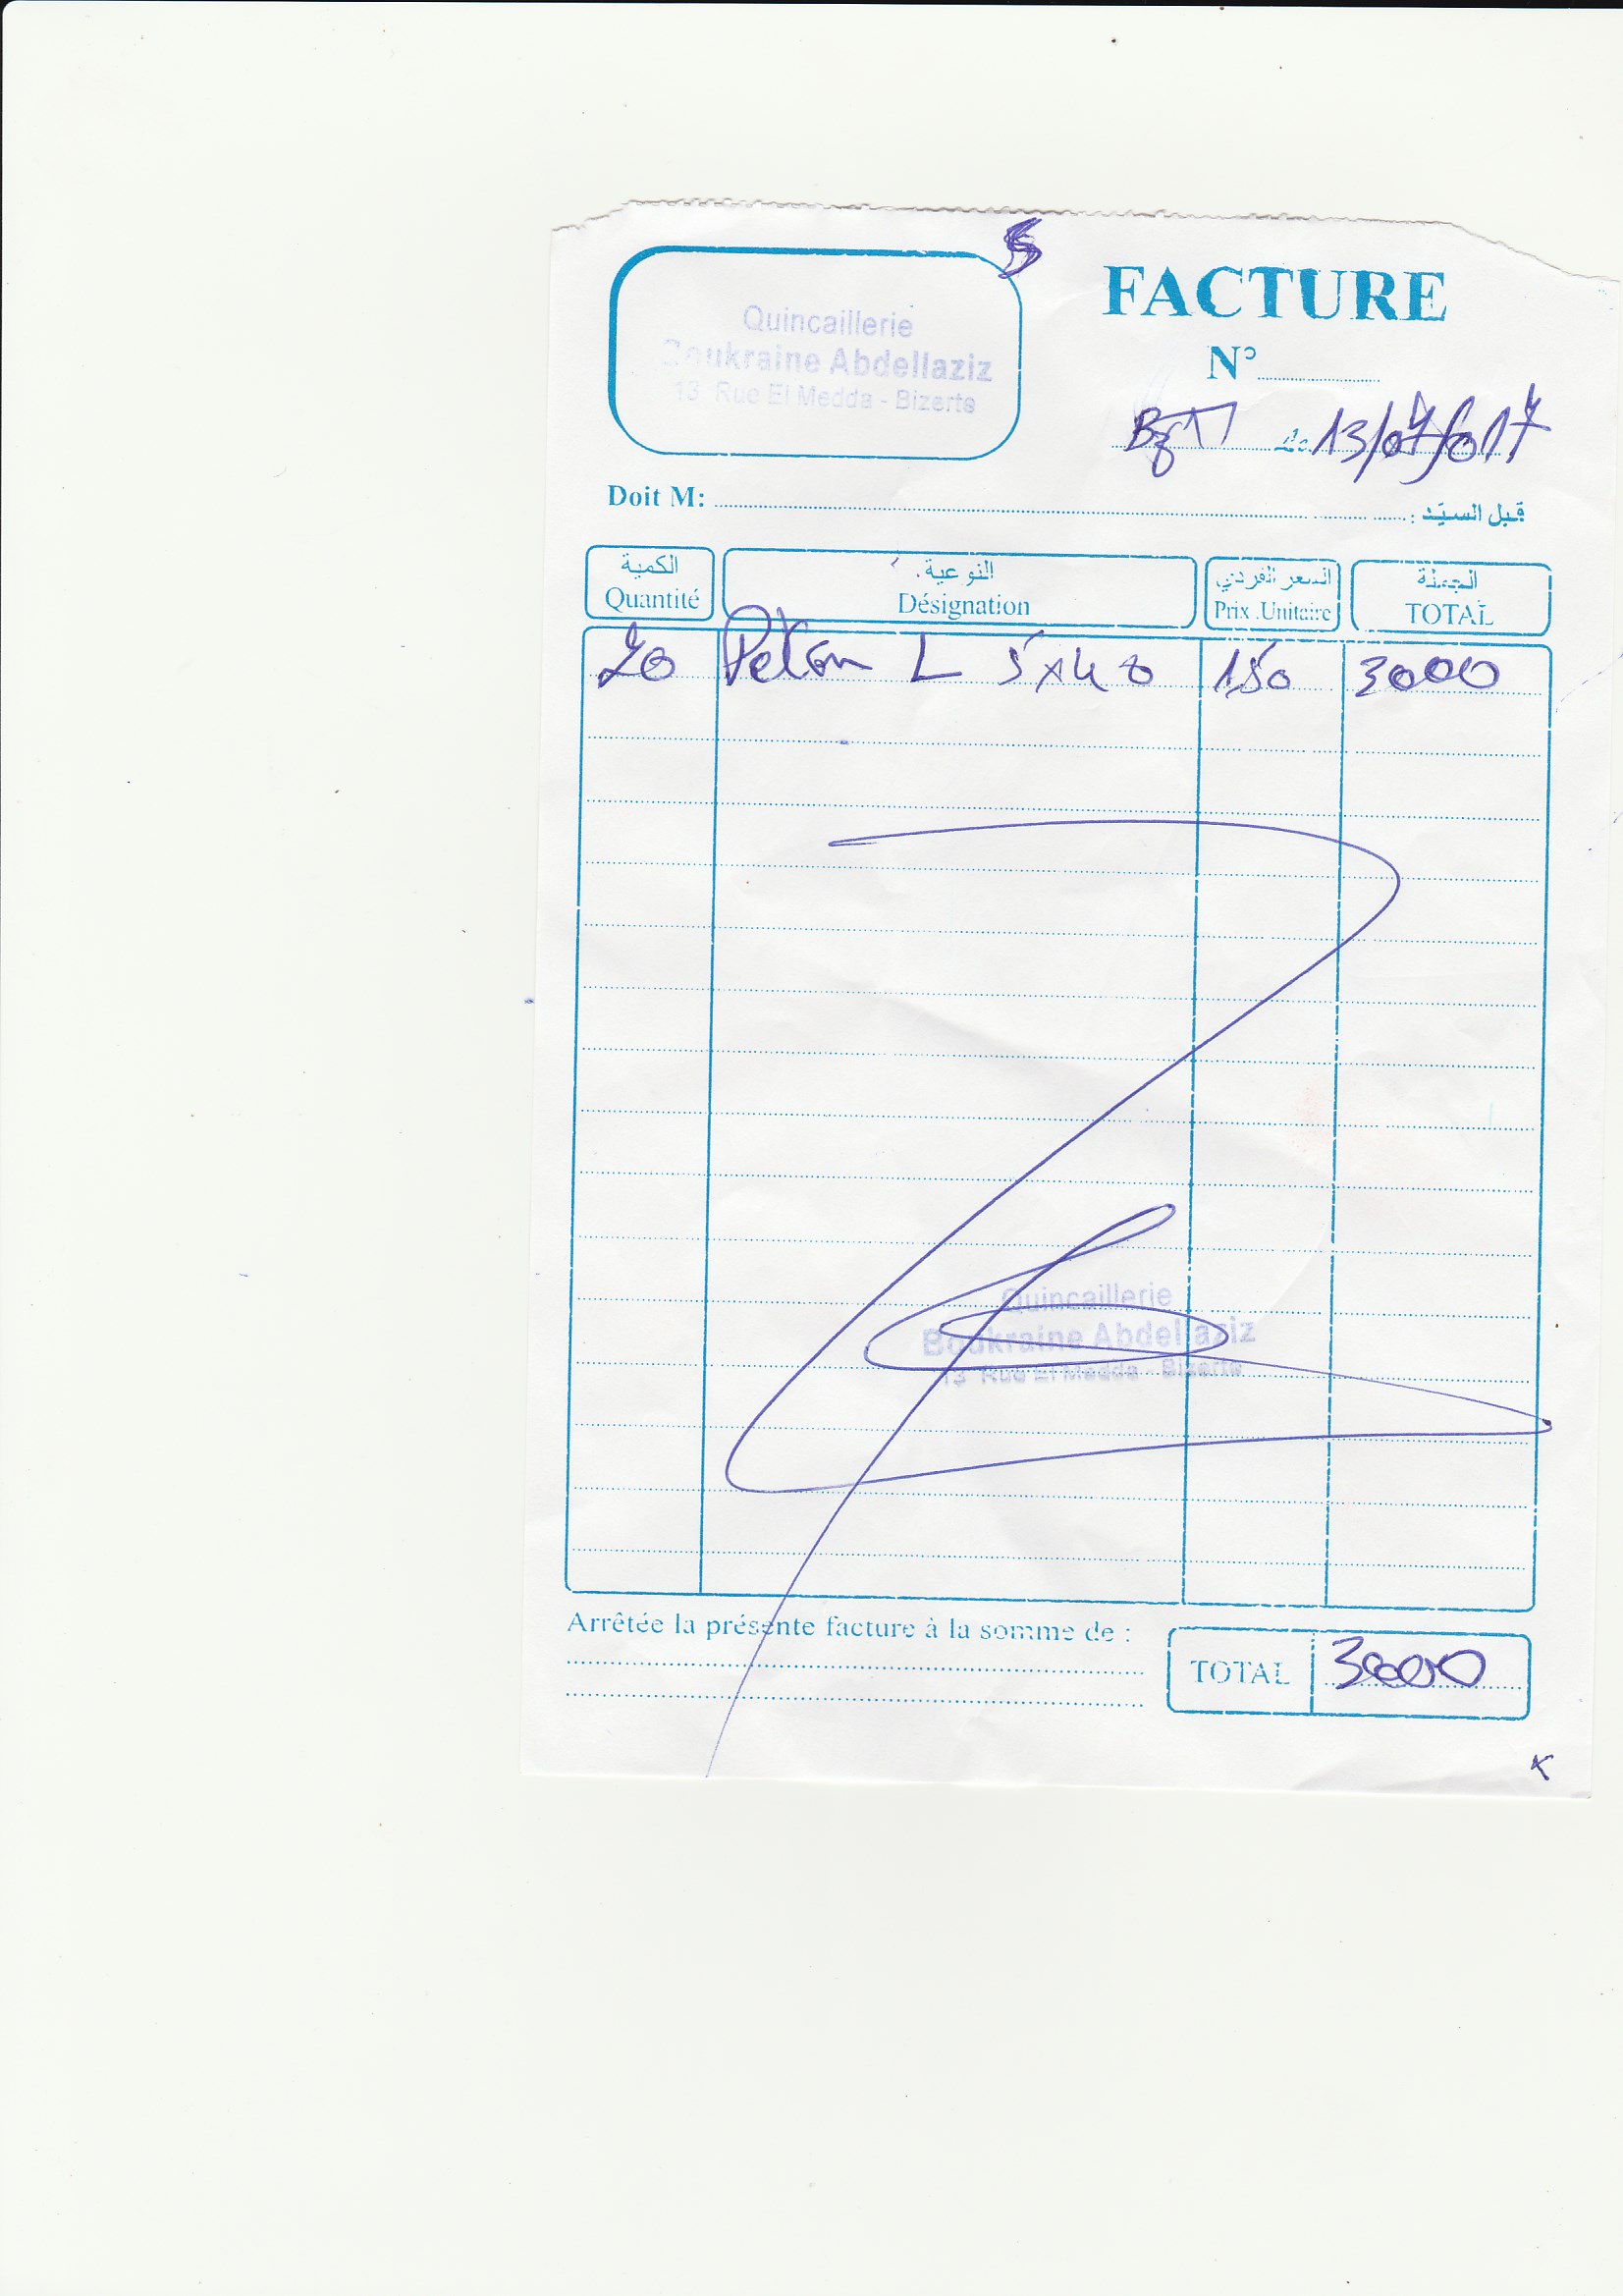 5
Quincaillerie
Boukraine Abdellaziz
13 Rue El Medda - Bizerte
FACTURE
N°
le 13/07/017
Doit M: قبل السيّد :
الكمية النوعية السعر الفردي الجملة
Quantité Désignation Prix .Unitaire TOTAL
20 Piton L 5x40 150 3000
Quincaillerie
Boukraine Abdellaziz
13 Rue El Medda - Bizerte
Arrêtée la présente facture à la somme de :
TOTAL 3000